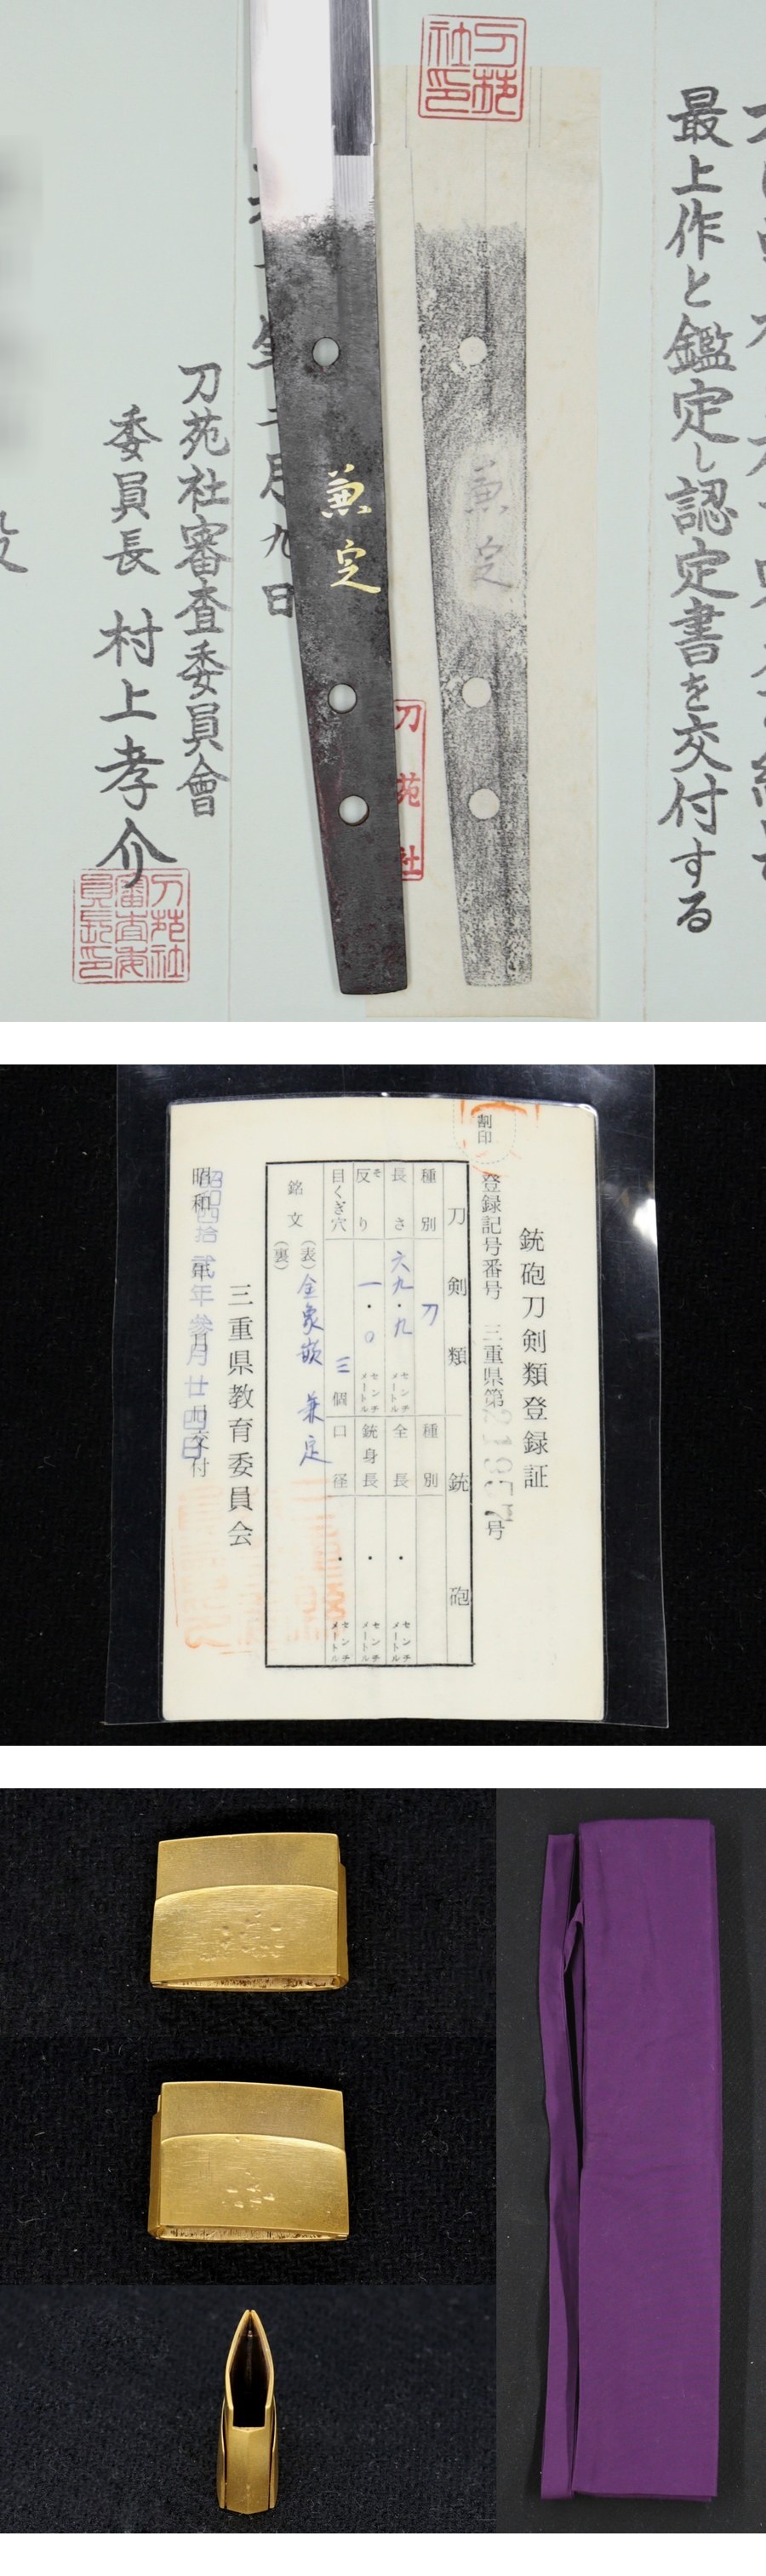 刀苑社印
最上作と鑑定し認定書を交付する
月九日
刀苑社審査委員會
委員長 村上孝介
刀苑社審査委員長印
兼定
兼定
刀苑社
割印
銃砲刀剣類登録証
登録記号番号 三重県第21957号
刀剣類 銃砲
種別 刀 種別
長さ 六九・九 センチメートル 全長 ・ センチメートル
反り 一・〇 センチメートル 銃身長 ・ センチメートル
目くぎ穴 三個 口径 ・ センチメートル
銘文 (表) 金象嵌 兼定
(裏)
三重県教育委員会
昭和四拾弐年参月廿四日交付